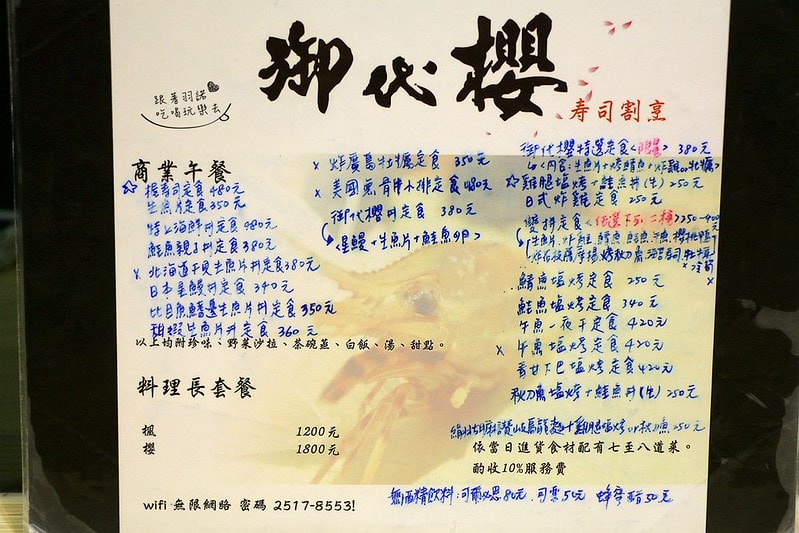 御代櫻
壽司割烹
跟著羽諾
吃喝玩樂去
商業午餐
☆ 握壽司定食 480元
生魚片定食 350元
特上海鮮丼定食 480元
鮭魚親子丼定食 380元
x 北海道干貝生魚片丼定食 380元
日本星鰻丼定食 340元
比目魚鰭邊生魚片丼定食 350元
甜蝦生魚片丼定食 360元
以上均附珍味、野菜沙拉、茶碗蒸、白飯、湯、甜點。
x 炸廣島牡蠣定食 350元
x 美國 骨牛小排定食 480元
御代櫻丼定食 380元
<星鰻+生魚片+鮭魚卵>
御代櫻特選定食 380元
<內容:生魚片+烤鯖魚+炸雞or牡蠣>
☆ 雞腿塩烤+鮭魚丼(生) 250元
日式炸雞定食 250元
雙拼定食 <任選下列二種> 250-400元
鯖魚塩烤定食 250元
鮭魚塩烤定食 340元
午魚一夜干定食 420元
x 午魚塩烤定食 420元
青甘下巴塩烤定食 420元
秋刀魚塩烤+鮭魚丼(生) 250元
讚岐烏龍麵+雞腿塩烤or秋刀魚 250元
料理長套餐
楓 1200元
櫻 1800元
依當日進貨食材配有七至八道菜。
酌收10%服務費
wifi 無限網路 密碼 2517-8553!
無酒精飲料:可爾必思80元 可樂50元 蜂蜜醋50元